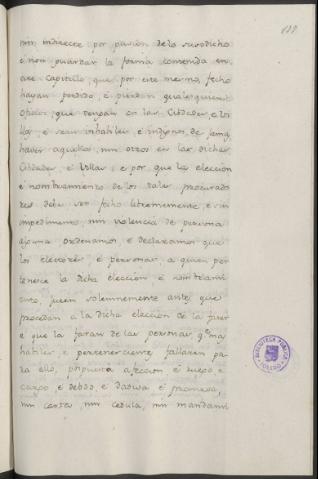 nin indirecte por pasion de lo susodicho
é non guardar la forma contenida en
este Capitulo, que por ese mesmo fecho
hayan perdido, é pierdan qualesquier
oficios, que tengan en las Cibdades, e Vi
llas, é sean inhabiles é indignos de jamas
haver aquellos, nin otros en las dichas
Cibdades, é Villas; e por que la eleccion
é nombramiento de los tales procurado
res debe ser fecho libremente, é sin
impedimento, nin violencia de persona
alguna ordenamos é declaramos que
los electores, é personas, a quien per
tenece la dicha eleccion é nombrami
ento, juren solennemente antes que
procedan a la dicha eleccion de la facer
é que la faran de las personas, q.e mas
habiles é pertenecientes fallaren pa
ra ello, pospuesta afeccion é ruego é
cargo, é debdo, é dadiva é promesa,
nin carta, nin cedula, ni mandami
BIBLIOTECA PUBLICA
TOLEDO